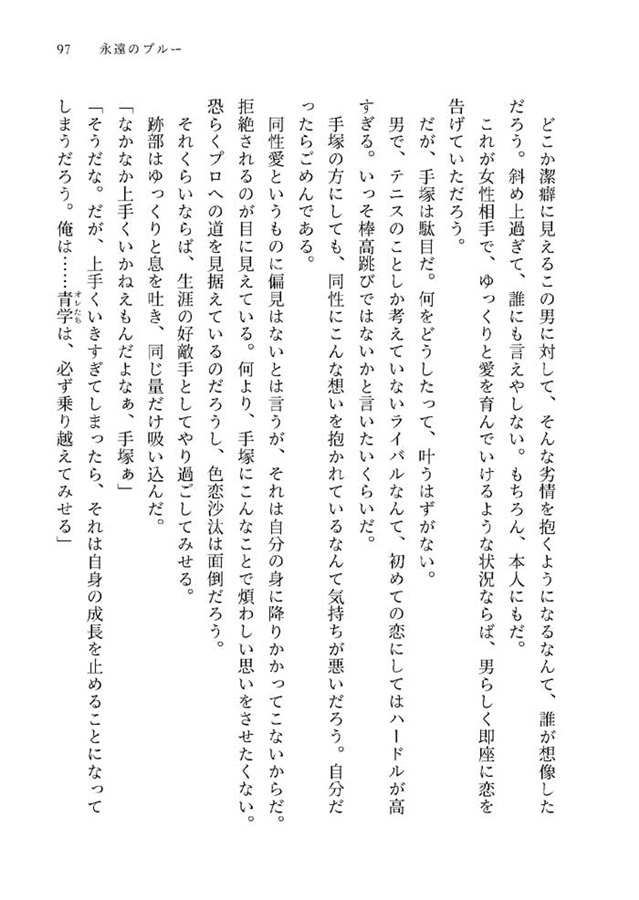 97 永遠のブルー
どこか潔癖に見えるこの男に対して、そんな劣情を抱くようになるなんて、誰が想像した
だろう。斜め上過ぎて、誰にも言えやしない。もちろん、本人にもだ。
これが女性相手で、ゆっくりと愛を育んでいけるような状況ならば、男らしく即座に恋を
告げていただろう。
だが、手塚は駄目だ。何をどうしたって、叶うはずがない。
男で、テニスのことしか考えていないライバルなんて、初めての恋にしてはハードルが高
すぎる。いっそ棒高跳びではないかと言いたいくらいだ。
手塚の方にしても、同性にこんな想いを抱かれているなんて気持ちが悪いだろう。自分だ
ったらごめんである。
同性愛というものに偏見はないとは言うが、それは自分の身に降りかかってこないからだ。
拒絶されるのが目に見えている。何より、手塚にこんなことで煩わしい思いをさせたくない。
恐らくプロへの道を見据えているのだろうし、色恋沙汰は面倒だろう。
それくらいならば、生涯の好敵手としてやり過ごしてみせる。
跡部はゆっくりと息を吐き、同じ量だけ吸い込んだ。
「なかなか上手くいかねえもんだよなぁ、手塚ぁ」
「そうだな。だが、上手くいきすぎてしまったら、それは自身の成長を止めることになって
しまうだろう。俺は……青学は、必ず乗り越えてみせる」
オレたち